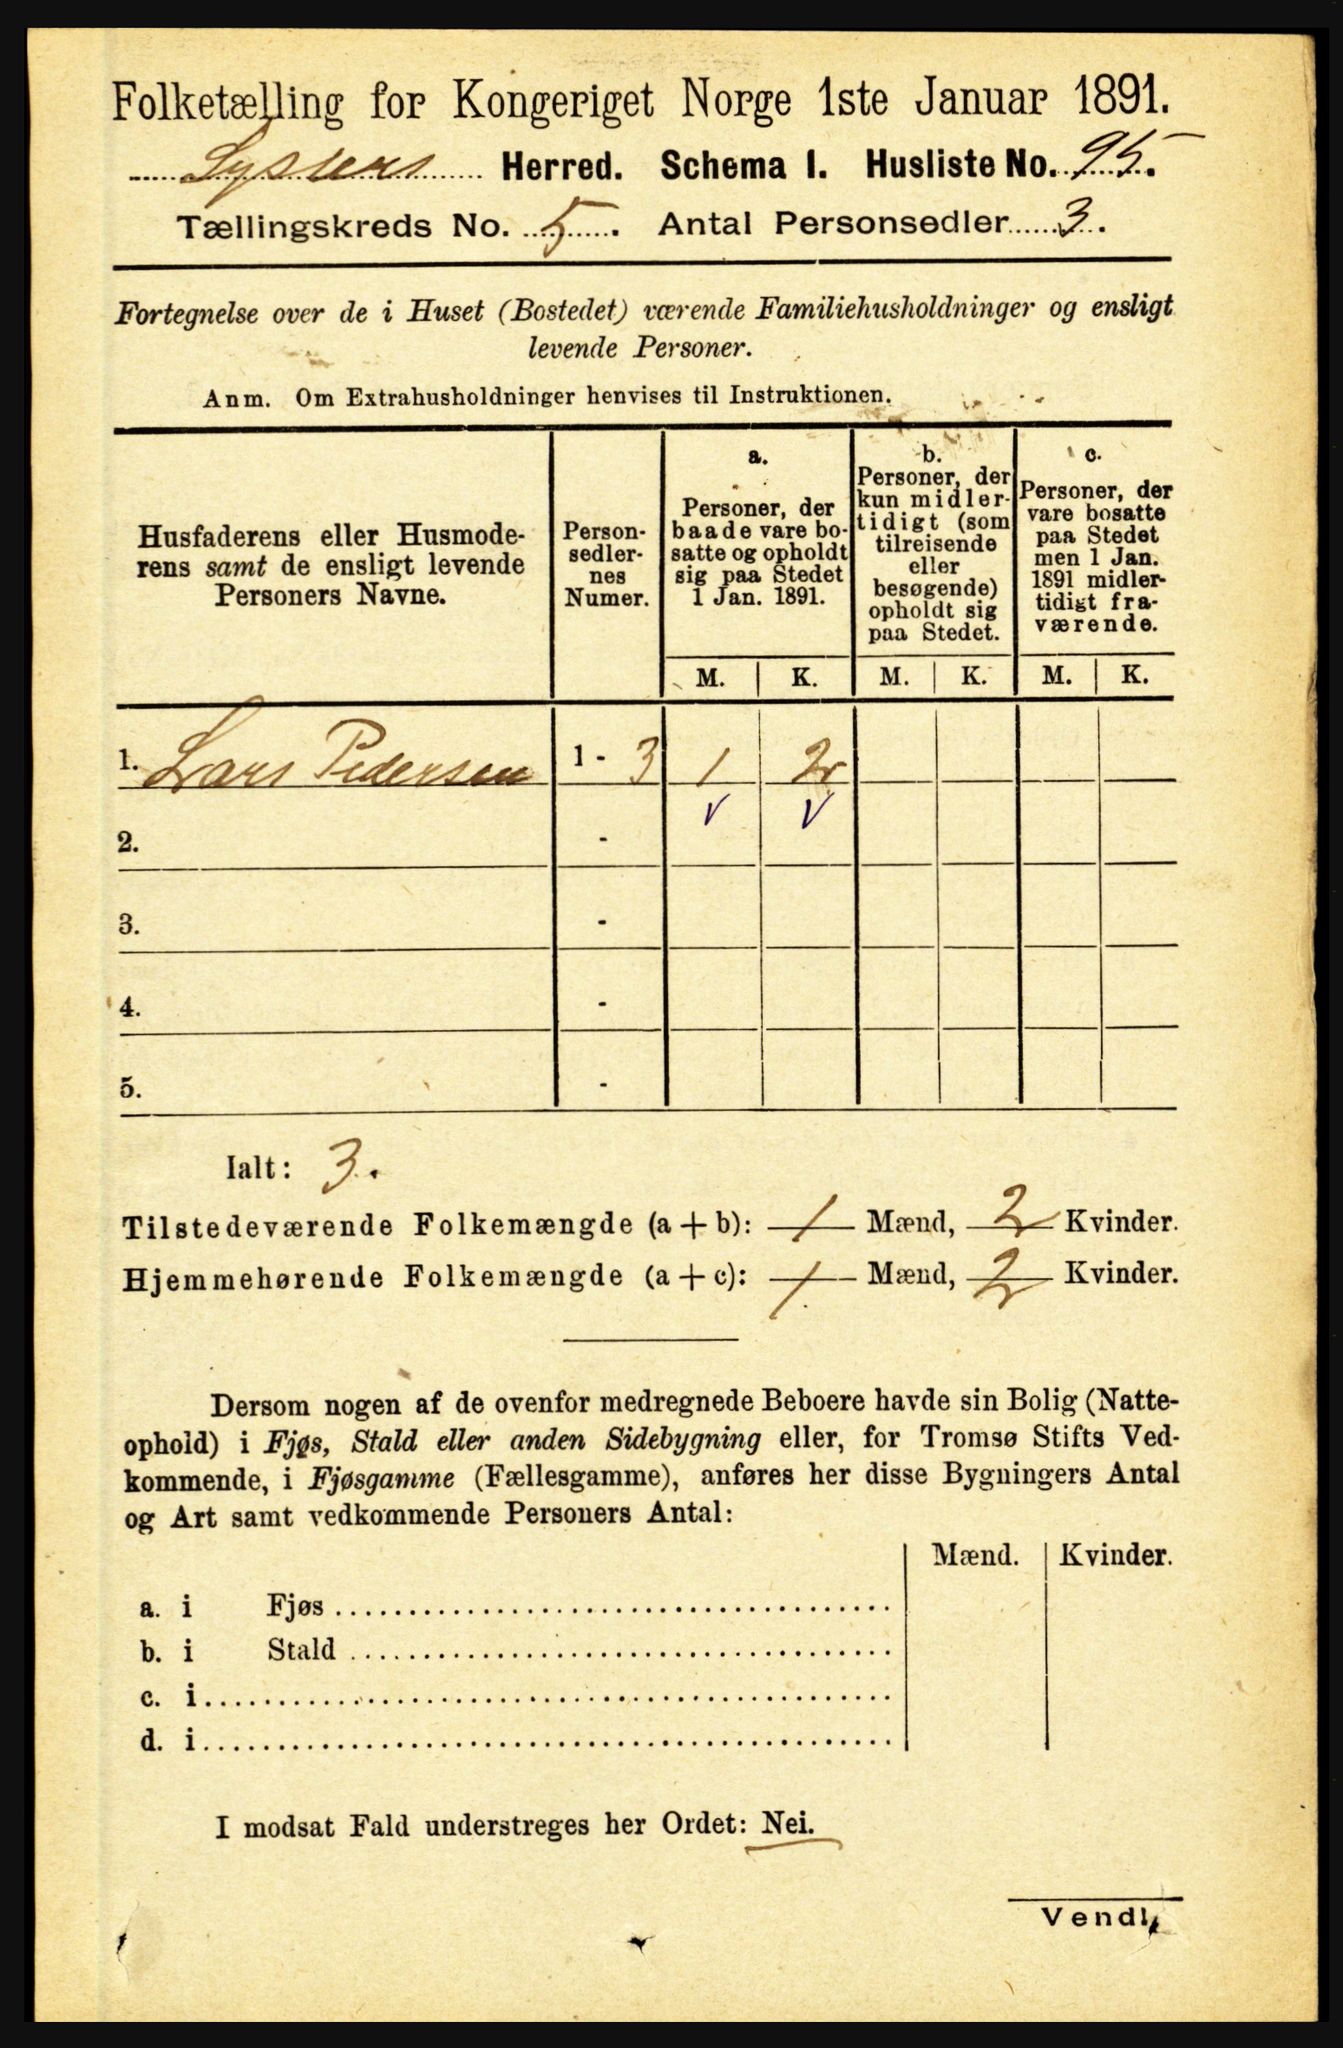 Folketælling for Kongeriget Norge 1ste Januar 1891.
Lysters Herred. Schema I. Husliste No. 95.
Tællingskreds No. 5. Antal Personsedler 3.
Fortegnelse over de i Huset (Bostedet) værende Familiehusholdninger og ensligt
levende Personer.
Anm. Om Extrahusholdninger henvises til Instruktionen.
Husfaderens eller Husmode-
rens samt de ensligt levende
Personers Navne.
Person-
sedler-
nes
Numer.
a.
Personer, der
baade vare bo-
satte og opholdt
sig paa Stedet
1 Jan. 1891.
b.
Personer, der
kun midler-
tidigt (som
tilreisende
eller
besøgende)
opholdt sig
paa Stedet.
c.
Personer, der
vare bosatte
paa Stedet
men 1 Jan.
1891 midler-
tidigt fra-
værende.
M. K. M. K. M. K.
1. Lars Pedersen 1 - 3 1 2
2. - v v
3. -
4. -
5. -
Ialt: 3.
Tilstedeværende Folkemængde (a + b): 1 Mænd, 2 Kvinder.
Hjemmehørende Folkemængde (a + c): 1 Mænd, 2 Kvinder.
Dersom nogen af de ovenfor medregnede Beboere havde sin Bolig (Natte-
ophold) i Fjøs, Stald eller anden Sidebygning eller, for Tromsø Stifts Ved-
kommende, i Fjøsgamme (Fællesgamme), anføres her disse Bygningers Antal
og Art samt vedkommende Personers Antal:
Mænd. Kvinder.
a. i Fjøs
b. i Stald
c. i
d. i
I modsat Fald understreges her Ordet: Nei.
Vend!